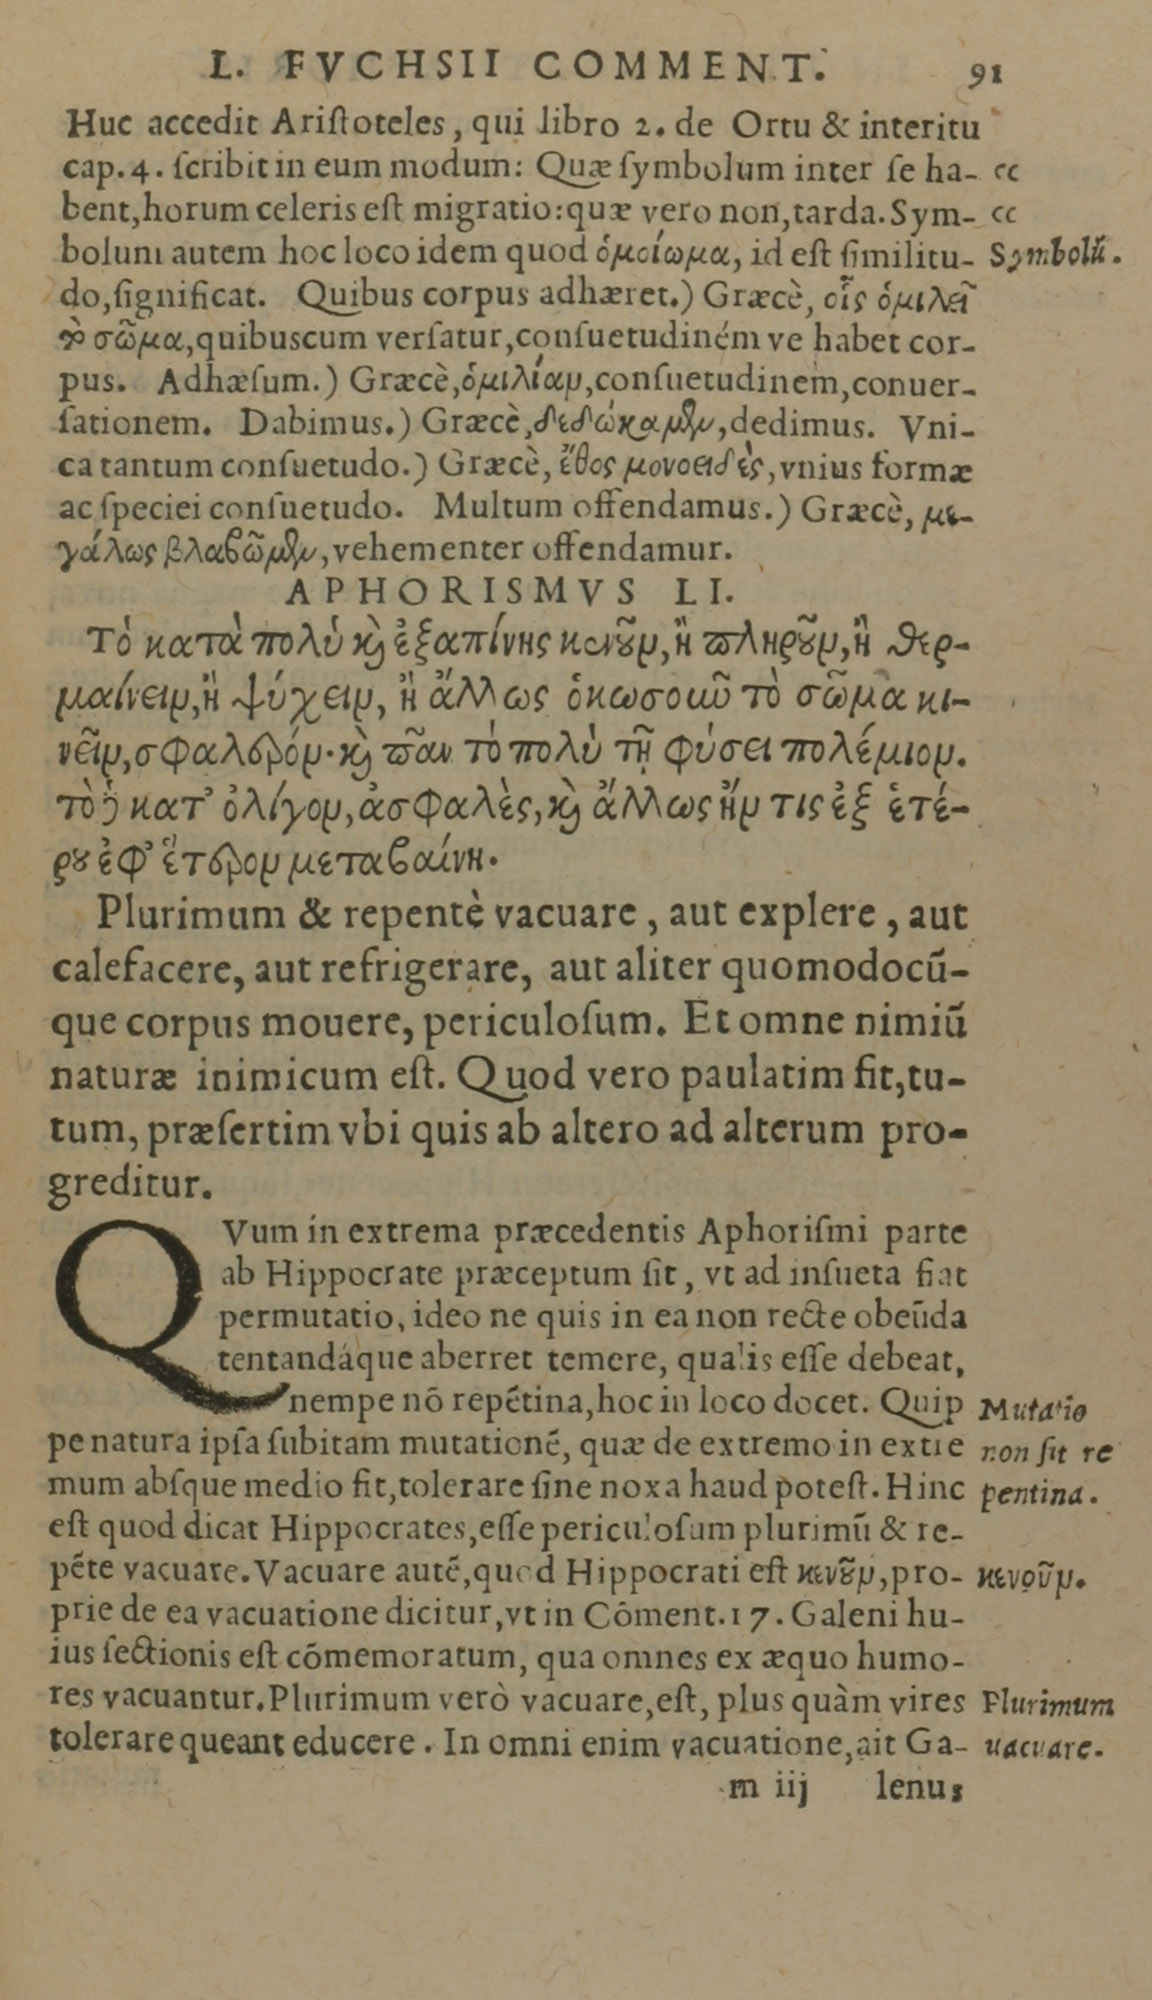 L. FVCHSII COMMENT. 91
Huc accedit Ariſtoteles, qui libro 2. de Ortu & interitu
cap. 4. ſcribit in eum modum: Quæ ſymbolum inter ſe ha- cc
bent, horum celeris eſt migratio: quæ vero non, tarda. Sym- cc
bolum autem hoc loco idem quod ὁμοίωμα, id eſt ſimilitu- Symbolũ.
do, ſignificat. Quibus corpus adhæret.) Græcè, οἷς ὁμιλεῖ
τὸ σῶμα, quibuscum verſatur, conſuetudiném ve habet cor-
pus. Adhæſum.) Græcè, ὁμιλίαν, conſuetudinem, conuer-
ſationem. Dabimus.) Græcè, δεδώκαμεν, dedimus. Vni-
ca tantum conſuetudo.) Græcè, ἔθος μονοειδὲς, vnius formæ
ac ſpeciei conſuetudo. Multum offendamus.) Græcè, με-
γάλως βλαβῶμεν, vehementer offendamur.
APHORISMVS LI.
Τὸ κατὰ πολὺ καὶ ἐξαπίνης κενοῦν, ἢ πληροῦν, ἢ θερ-
μαίνειν, ἢ ψύχειν, ἢ ἄλλως ὁκωσοιοῦν τὸ σῶμα κι-
νεῖν, σφαλερόν· καὶ πᾶν τὸ πολὺ τῇ φύσει πολέμιον.
τὸ δὲ κατ' ὀλίγον, ἀσφαλὲς, καὶ ἄλλως ἤν τις ἐξ ἑτέ-
ρου ἐφ' ἕτερον μεταβαίνῃ.
Plurimum & repentè vacuare, aut explere, aut
calefacere, aut refrigerare, aut aliter quomodocũ-
que corpus mouere, periculoſum. Et omne nimiũ
naturæ inimicum eſt. Quod vero paulatim fit, tu-
tum, præſertim vbi quis ab altero ad alterum pro-
greditur.
QVum in extrema præcedentis Aphoriſmi parte
ab Hippocrate præceptum ſit, vt ad inſueta fiat
permutatio, ideo ne quis in ea non recte obeũda
tentandáque aberret temere, qualis eſſe debeat,
nempe nõ repẽtina, hoc in loco docet. Quip Mutatio
pe natura ipſa ſubitam mutationẽ, quæ de extremo in extre non ſit re
mum abſque medio fit, tolerare ſine noxa haud poteſt. Hinc pentina.
eſt quod dicat Hippocrates, eſſe periculoſum plurimũ & re-
pẽte vacuare. Vacuare autẽ, quod Hippocrati eſt κενοῦν, pro- κενοῦν.
prie de ea vacuatione dicitur, vt in Cõment. 17. Galeni hu-
ius ſectionis eſt cõmemoratum, qua omnes ex æquo humo-
res vacuantur. Plurimum verò vacuare, eſt, plus quàm vires Plurimum
tolerare queant educere. In omni enim vacuatione, ait Ga- uacuare.
m iij lenus